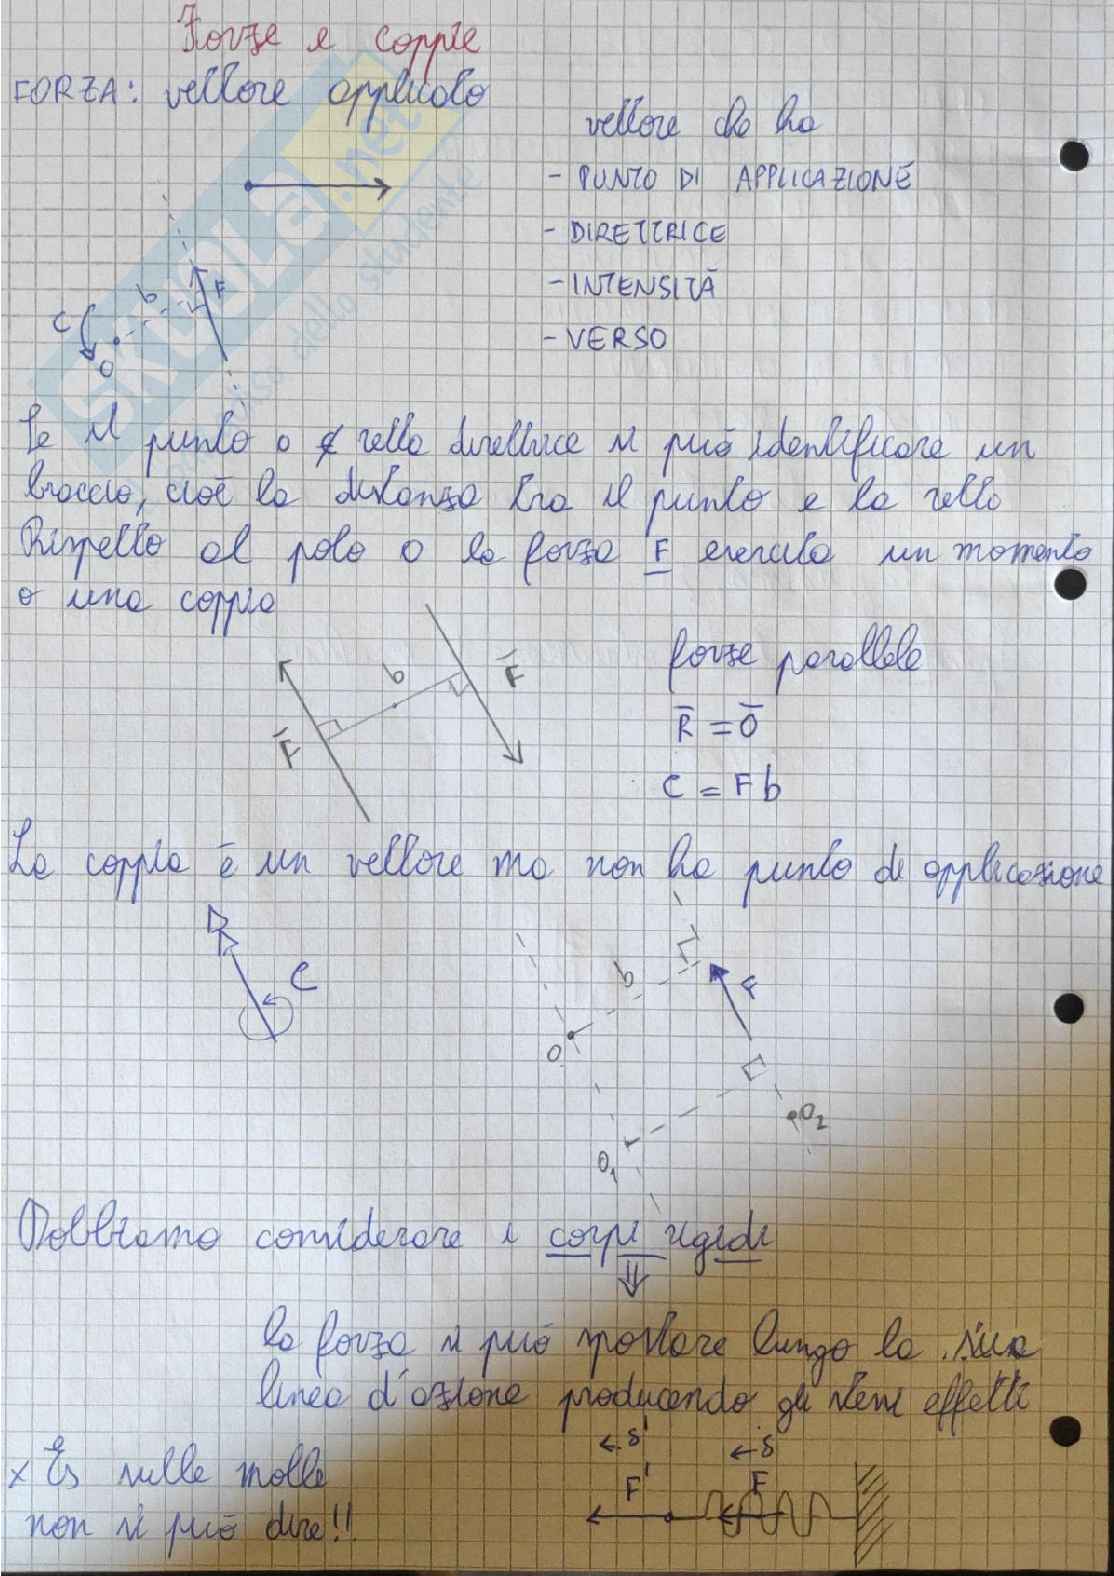 Forze e coppie
FORZA: vettore applicato
vettore che ha
- PUNTO DI APPLICAZIONE
- DIRETTRICE
- INTENSITÀ
- VERSO
F
b
C
O
Se il punto o ∉ retta direttrice si può identificare un
braccio, cioè la distanza tra il punto e la retta
Rispetto al polo o la forza F esercita un momento
o una coppia
b
F̄
F̄
forze parallele
R̄ = Ō
C = F b
La coppia è un vettore ma non ha punto di applicazione
C
b
F
O
O₂
O₁
Dobbiamo considerare i corpi rigidi
⇓
la forza si può spostare lungo la sua
linea d'azione producendo gli stessi effetti
x Es sulle molle
non si può dire!!
← δ'
← δ
F'
F
SKUOLA.net